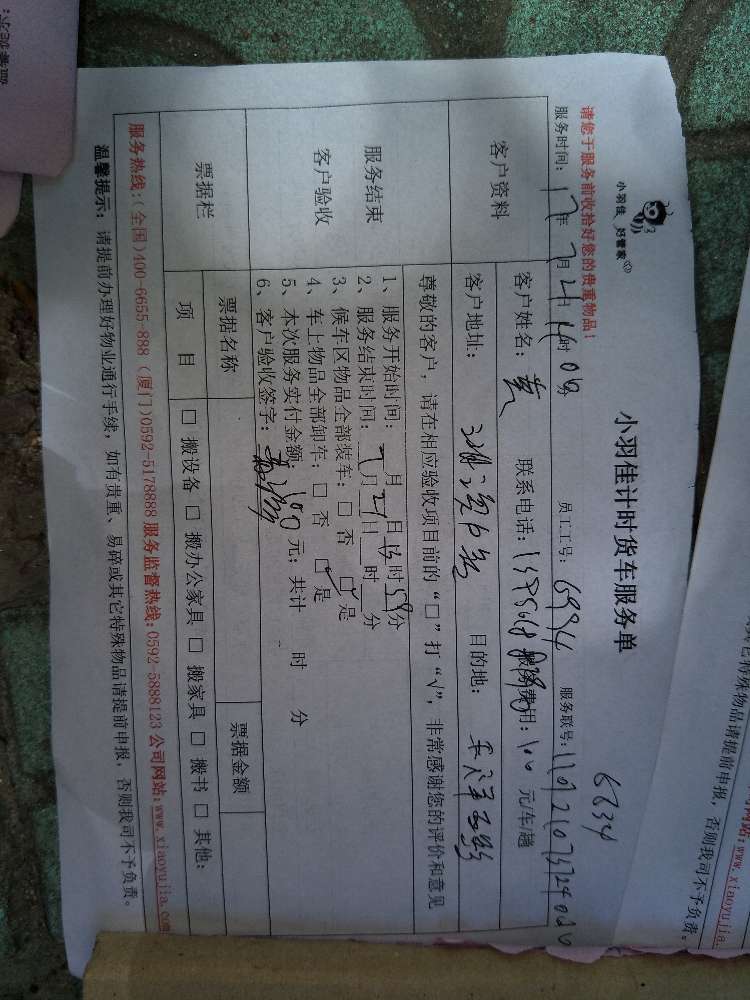 请您于服务前收拾好您的贵重物品！
小羽佳 好管家
小羽佳计时货车服务单
服务时间：17年7月21日 时 分 员工工号：6994 服务联号：
6834
客户资料 客户姓名：黄 联系电话： 服务费用：100元/车趟
客户地址： 目的地：
尊敬的客户，请在相应验收项目前的“□”打“√”，非常感谢您的评价和意见
服务结束
客户验收
1、服务开始时间： 月 日 时 分
2、服务结束时间：7月21日 时 分
3、候车区物品全部装车：□ 否 □ 是
4、车上物品全部卸车：□ 否 □ 是
5、本次服务实付金额：100元；共计 时 分
6、客户验收签字：
票据栏 票据名称 票据金额
项 目 □ 搬设备 □ 搬办公家具 □ 搬家具 □ 搬书 □ 其他：
服务热线：(全国)400-6655-888 (厦门)0592-5178888 服务监督热线：0592-5888123 公司网站：www.xiaoyujia.com
温馨提示：请提前办理好物业通行手续，如有贵重、易碎或其它特殊物品请提前申报，否则我司不予负责。
www.xiaoyujia.
它特殊物品请提前申报，否则我司不予负责。